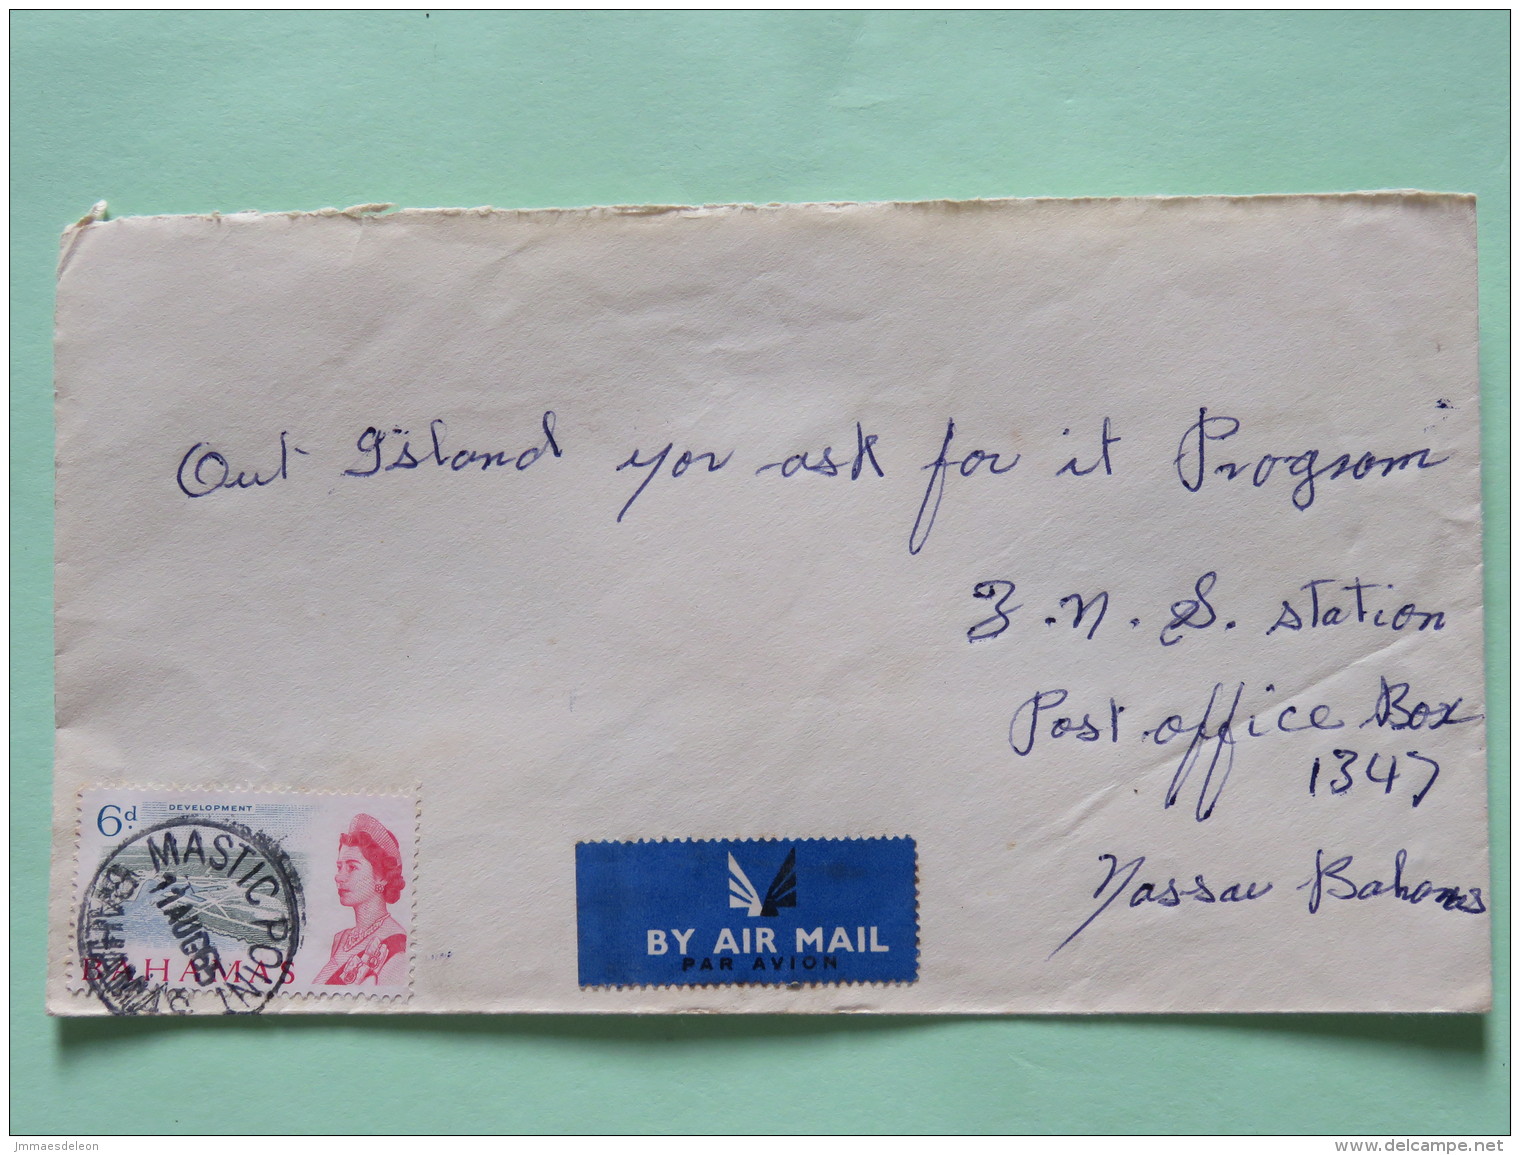 Out Island yor ask for it Program
Z.N.S. station
Post office Box
1347
Nassau Bahamas
6d
DEVELOPMENT
BAHAMAS
MASTIC POINT
BAHAMAS
11 AU 65
BY AIR MAIL
PAR AVION
jmmaesdeleon
www.delcampe.net